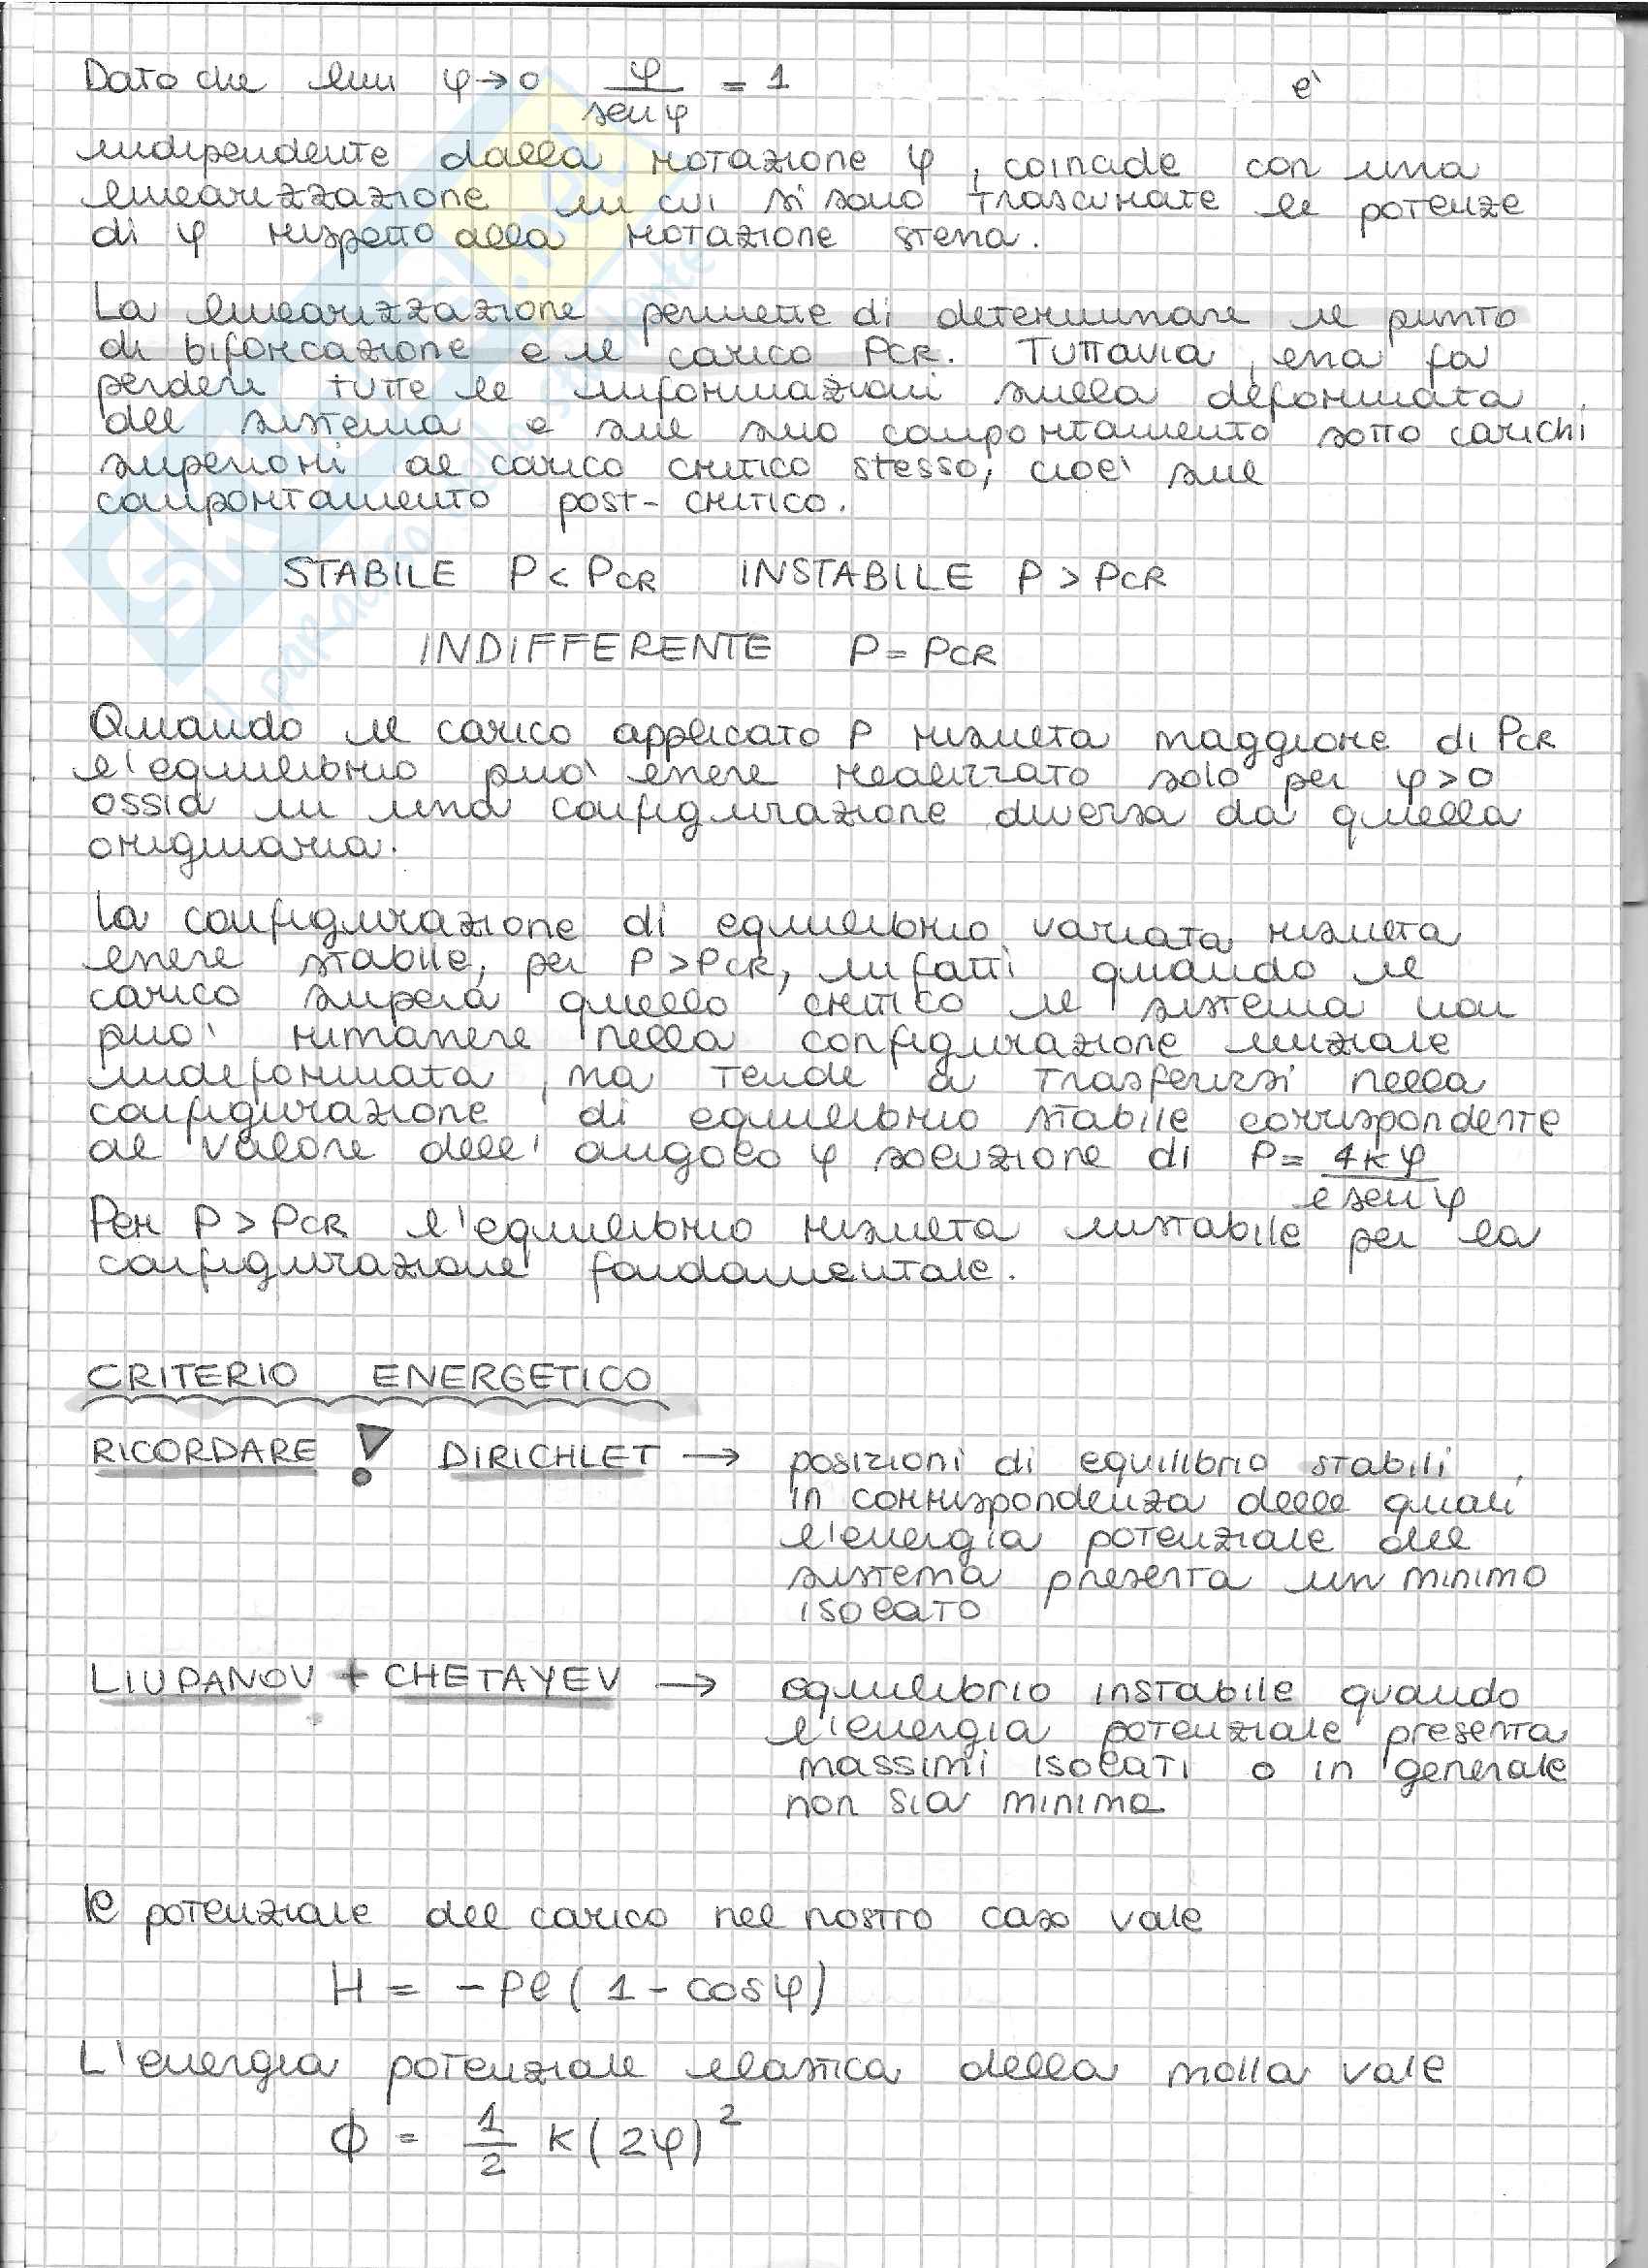 Dato che lim φ→0 φ/senφ = 1 e'
indipendente dalla rotazione φ, coincide con una
linearizzazione in cui si sono trascurate le potenze
di φ rispetto alla rotazione stessa.
La linearizzazione permette di determinare il punto
di biforcazione e il carico PCR. Tuttavia, essa fa
perdere tutte le informazioni sulla deformata
del sistema e sul suo comportamento sotto carichi
superiori al carico critico stesso, cioe' sul
comportamento post-critico.
STABILE P < PCR INSTABILE P > PCR
INDIFFERENTE P = PCR
Quando il carico applicato P risulta maggiore di PCR
l'equilibrio puo' essere realizzato solo per φ>0
ossia in una configurazione diversa da quella
originaria.
La configurazione di equilibrio variata risulta
essere stabile, per P>PCR, infatti quando il
carico supera quello critico il sistema non
puo' rimanere nella configurazione iniziale
indeformata, ma tende a trasferirsi nella
configurazione di equilibrio stabile corrispondente
al valore dell'angolo φ soluzione di P= 4kφ/l senφ
Per P > PCR l'equilibrio risulta instabile per la
configurazione fondamentale.
CRITERIO ENERGETICO
RICORDARE ! DIRICHLET → posizioni di equilibrio stabili,
in corrispondenza delle quali
l'energia potenziale del
sistema presenta un minimo
isolato
LIUPANOV + CHETAYEV → equilibrio instabile quando
l'energia potenziale presenta
massimi isolati o in generale
non sia minima
Il potenziale del carico nel nostro caso vale
H = -Pl(1-cosφ)
L'energia potenziale elastica della molla vale
ϕ = 1/2 k(2φ)²